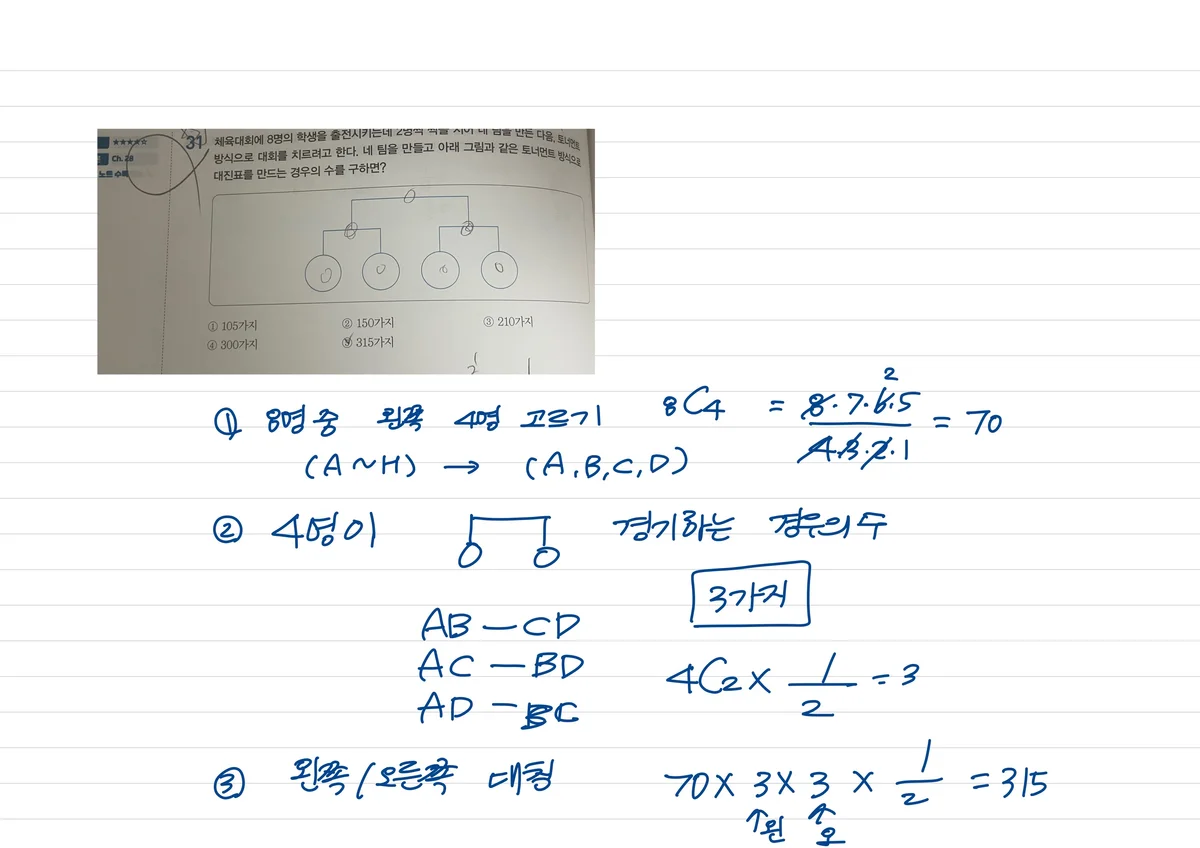 ★★★★☆
Ch. 28
노트 수록
31 체육대회에 8명의 학생을 출전시키는데 2명씩 짝을 지어 네 팀을 만든 다음, 토너먼트
방식으로 대회를 치르려고 한다. 네 팀을 만들고 아래 그림과 같은 토너먼트 방식으로
대진표를 만드는 경우의 수를 구하면?
① 105가지 ② 150가지 ③ 210가지
④ 300가지 ⑤ 315가지
① 8명 중 왼쪽 4명 고르기 8C4 = 8·7·6·5 / 4·3·2·1 = 70
2
(A~H) → (A,B,C,D)
② 4명이 경기하는 경우의 수
3가지
AB — CD
AC — BD
4C2 × 1/2 = 3
AD — BC
③ 왼쪽/오른쪽 대칭 70 × 3 × 3 × 1/2 = 315
↑왼 ↑오